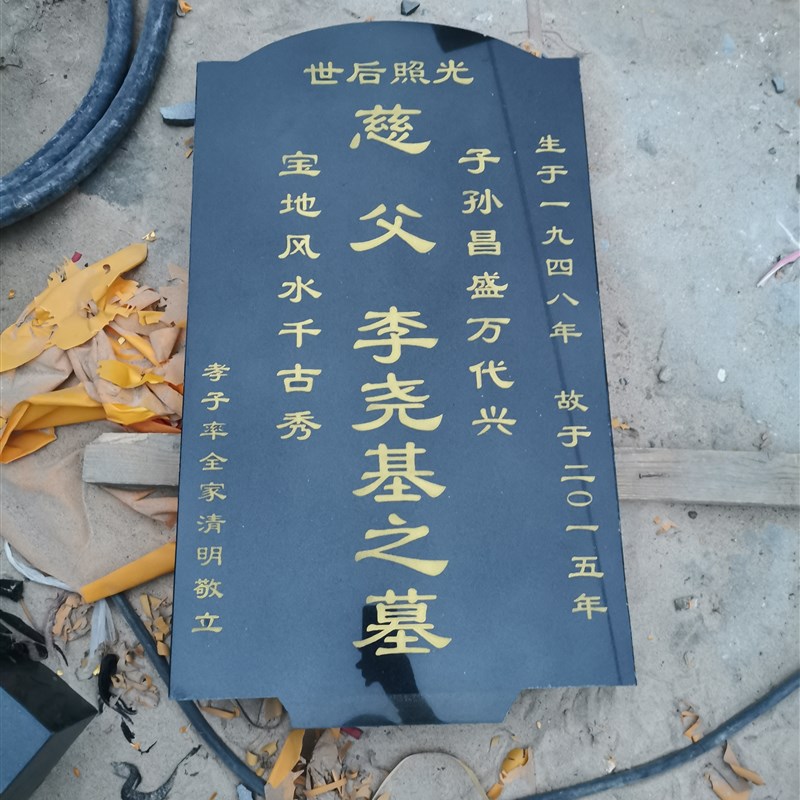 世后照光
生于一九四八年 故于二〇一五年
子孙昌盛万代兴
慈父 李尧基之墓
宝地风水千古秀
孝子率全家清明敬立